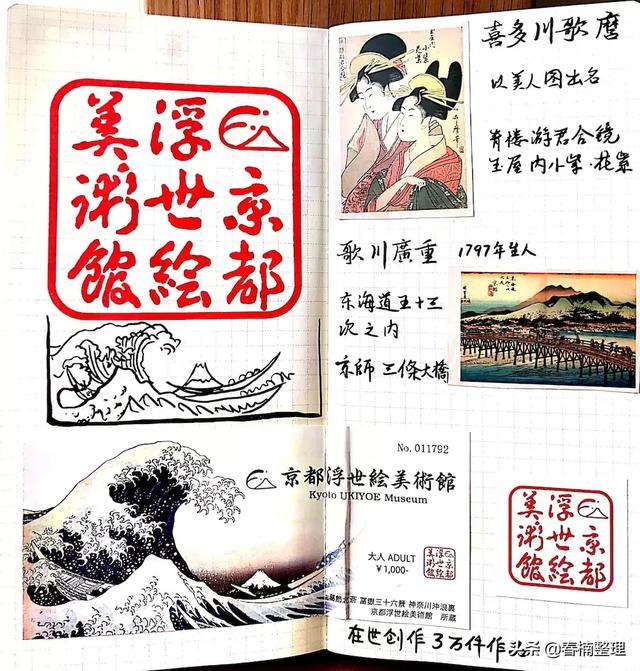 京都
浮世絵
美術館
喜多川歌麿
以美人图出名
青楼游君合镜
玉屋内小紫·花紫
歌川廣重 1797年生人
东海道五十三
次之内
京師 三條大橋
No. 011792
京都浮世絵美術館
Kyoto UKIYOE Museum
大人 ADULT
¥1,000-
京都
浮世絵
美術館
葛飾北斎 冨嶽三十六景 神奈川沖浪裏
京都浮世絵美術館 所蔵
京都
浮世絵
美術館
在世创作3万件作
头条 @春楠整理